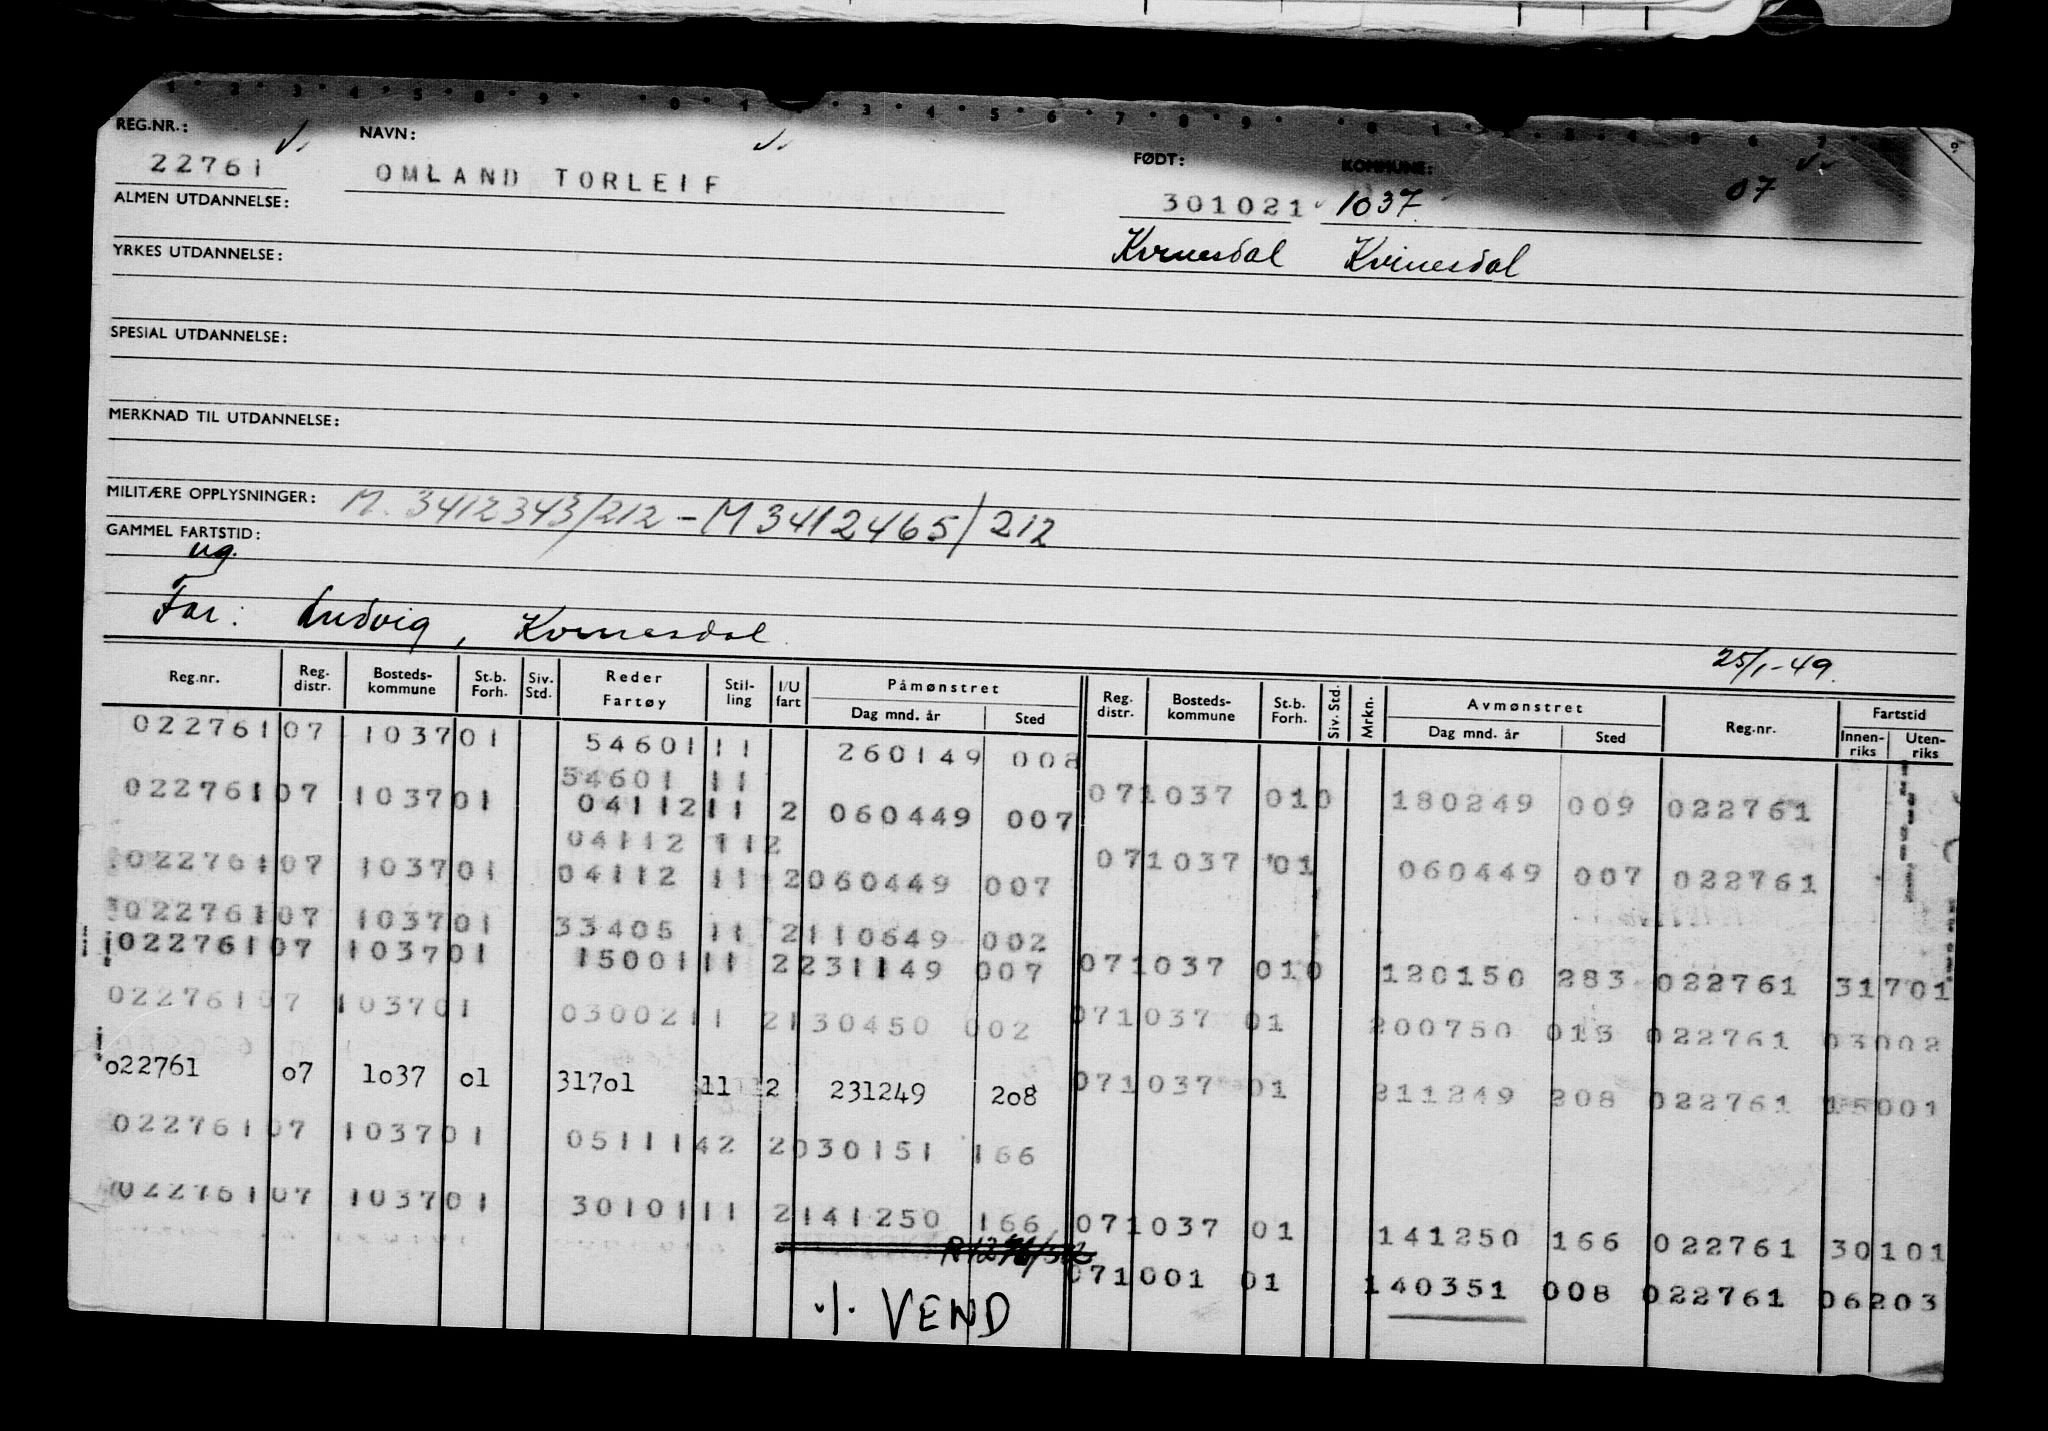 REG.NR.: NAVN: FØDT: KOMMUNE:
22761 OMLAND TORLEIF 301021 1037 07
ALMEN UTDANNELSE: Kvinesdal Kvinesdal
YRKES UTDANNELSE:
SPESIAL UTDANNELSE:
MERKNAD TIL UTDANNELSE:
MILITÆRE OPPLYSNINGER: M. 3412343/212 – M 3412465/212
GAMMEL FARTSTID:
ug.
Far: Ludvig, Kvinesdal.
25/1-49.
Reg.nr. Reg. distr. Bosteds- kommune St.b. Forh. Siv. Std. Reder Fartøy Stil- ling I/U fart Påmønstret Dag mnd. år Sted Reg. distr. Bosteds- kommune St.b. Forh. Siv. Std. Mrkn. Avmønstret Dag mnd. år Sted Reg.nr. Fartstid Innen- riks Uten- riks
022761 07 1037 01 54601 11 260149 008
54601 11
022761 07 1037 01 04112 11 2 060449 007 07 1037 010 180249 009 022761
04112 11 2
022761 07 1037 01 04112 11 2 060449 007 07 1037 01 060449 007 022761
022761 07 1037 01 33405 11 2 110649 002
022761 07 1037 01 15001 11 2 231149 007 07 1037 010 120150 283 022761 31701
022761 07 1037 01 03002 11 2 130450 002 07 1037 01 200750 013 022761 03002
022761 07 1037 01 31701 11 2 231249 208 07 1037 01 211249 208 022761 15001
022761 07 1037 01 05111 42 2 030151 166
022761 07 1037 01 30101 11 2 141250 166 07 1037 01 141250 166 022761 30101
07 1001 01 140351 008 022761 06203
./. VEND